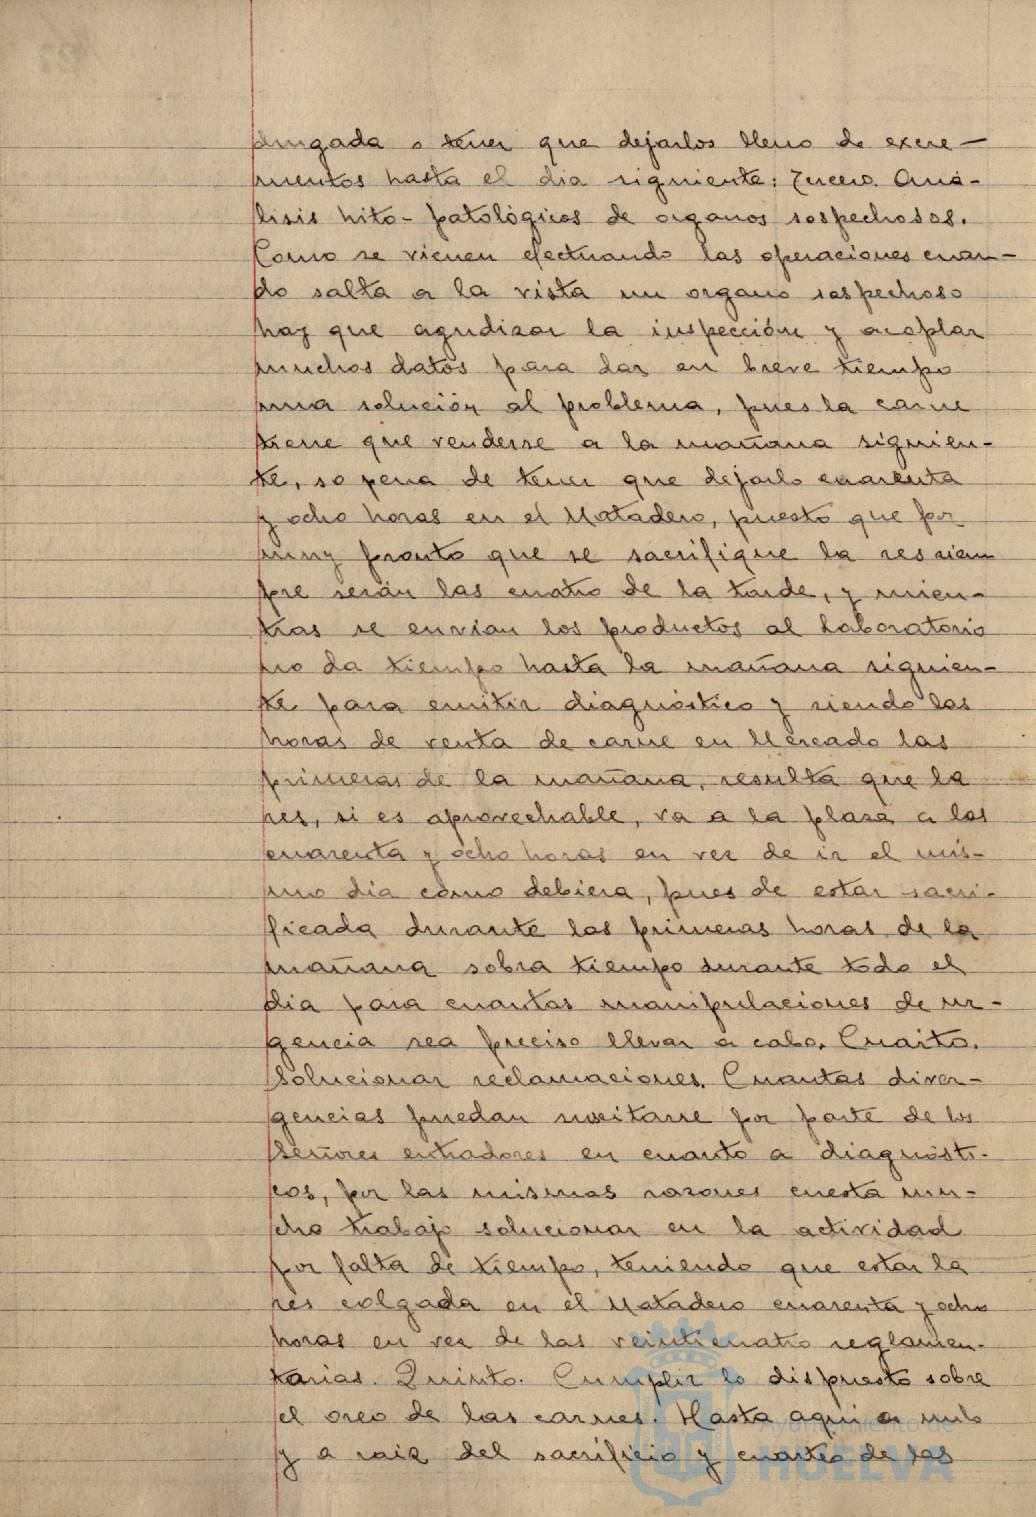 drugada o tener que dejarlos lleno de excre-
mentos hasta el dia siguiente: Tercero. Aná-
lisis hito-patológicos de organos sospechosos.
Como se vienen efectuando las operaciones cuan-
do salta a la vista un organo sospechoso
hay que agudizar la inspección y acoplar
muchos datos para dar en breve tiempo
una solución al problema, pues la carne
tiene que venderse a la mañana siguien-
te, so pena de tener que dejarlo cuarenta
y ocho horas en el Matadero, puesto que por
muy pronto que se sacrifique la res siem
pre serán las cuatro de la tarde, y mien-
tras se envían los productos al Laboratorio
no da tiempo hasta la mañana siguien-
te para emitir diagnóstico y siendo las
horas de venta de carne en Mercado las
primeras de la mañana, resulta que la
res, si es aprovechable, va a la plaza a las
cuarenta y ocho horas en vez de ir el mis-
mo dia cómo debiera, pues de estar sacri-
ficada durante las primeras horas de la
mañana sobra tiempo durante todo el
dia para cuantas manipulaciones de ur-
gencia sea preciso llevar a cabo. Cuarto.
Solucionar reclamaciones. Cuantas diver-
gencias puedan suscitarse por parte de los
Señores entradores en cuanto a diagnósti-
cos, por las mismas razones cuesta mu-
cho trabajo solucionar en la actividad
por falta de tiempo, teniendo que estar la
res colgada en el Matadero cuarenta y ocho
horas en vez de las veinticuatro reglamen-
tarias. Quinto. Cumplir lo dispuesto sobre
el oreo de las carnes. Hasta aquí es nulo
y a raiz del sacrificio y cuarteo de las
Ayuntamiento de
HUELVA